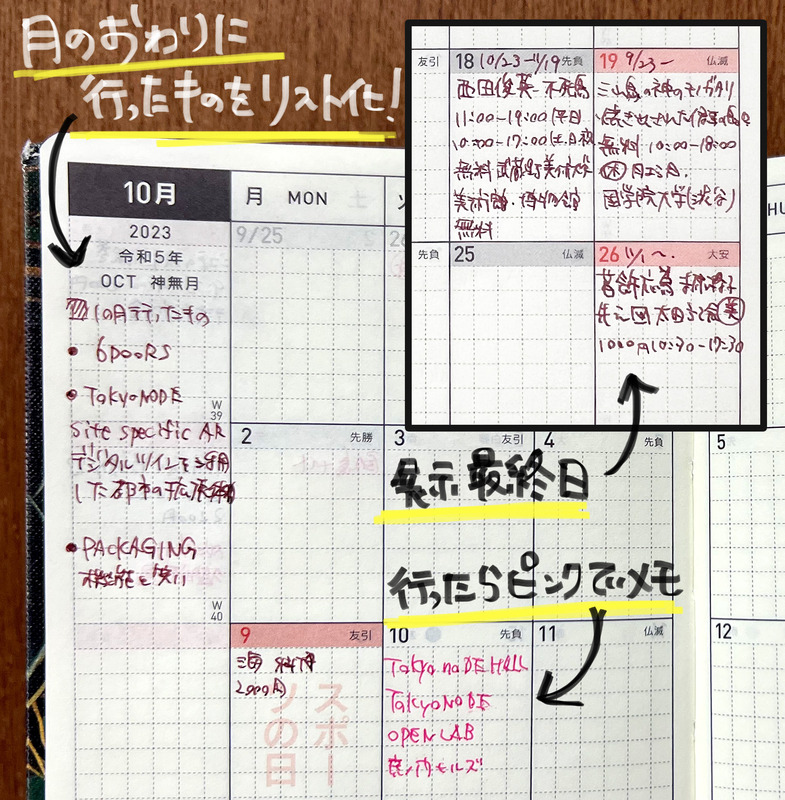 月のおわりに
行ったものをリスト化!
友引
18 10/23-11/19 先負
西田俊英 不死鳥
11:00-19:00(平日
10:00-17:00(土日祝
無料 武蔵野美術大学
美術館・博物館
無料
19 9/23- 仏滅
三山島の神のモノガタリ
無料 10:00-18:00
国学院大学(渋谷)
先負
25 仏滅
26 11/1〜. 大安
葛飾応為
太田記念美
1000円 10:30-17:30
展示最終日
行ったらピンクでメモ
10月
2023
令和5年
OCT 神無月
10月行ったもの
• 6DOORS
• TokyoNODE
Site specific AR
デジタルツインを活用
した都市の拡張
• PACKAGING
機能と笑い
W
39
W
40
月 MON
9/25
26
2 先勝
3 友引
4 先負
5
9 友引
2000円
スポー
ツの日
10 先負
Tokyo noDE HALL
TokyoNODE
OPEN LAB
虎ノ門ヒルズ
11 仏滅
12